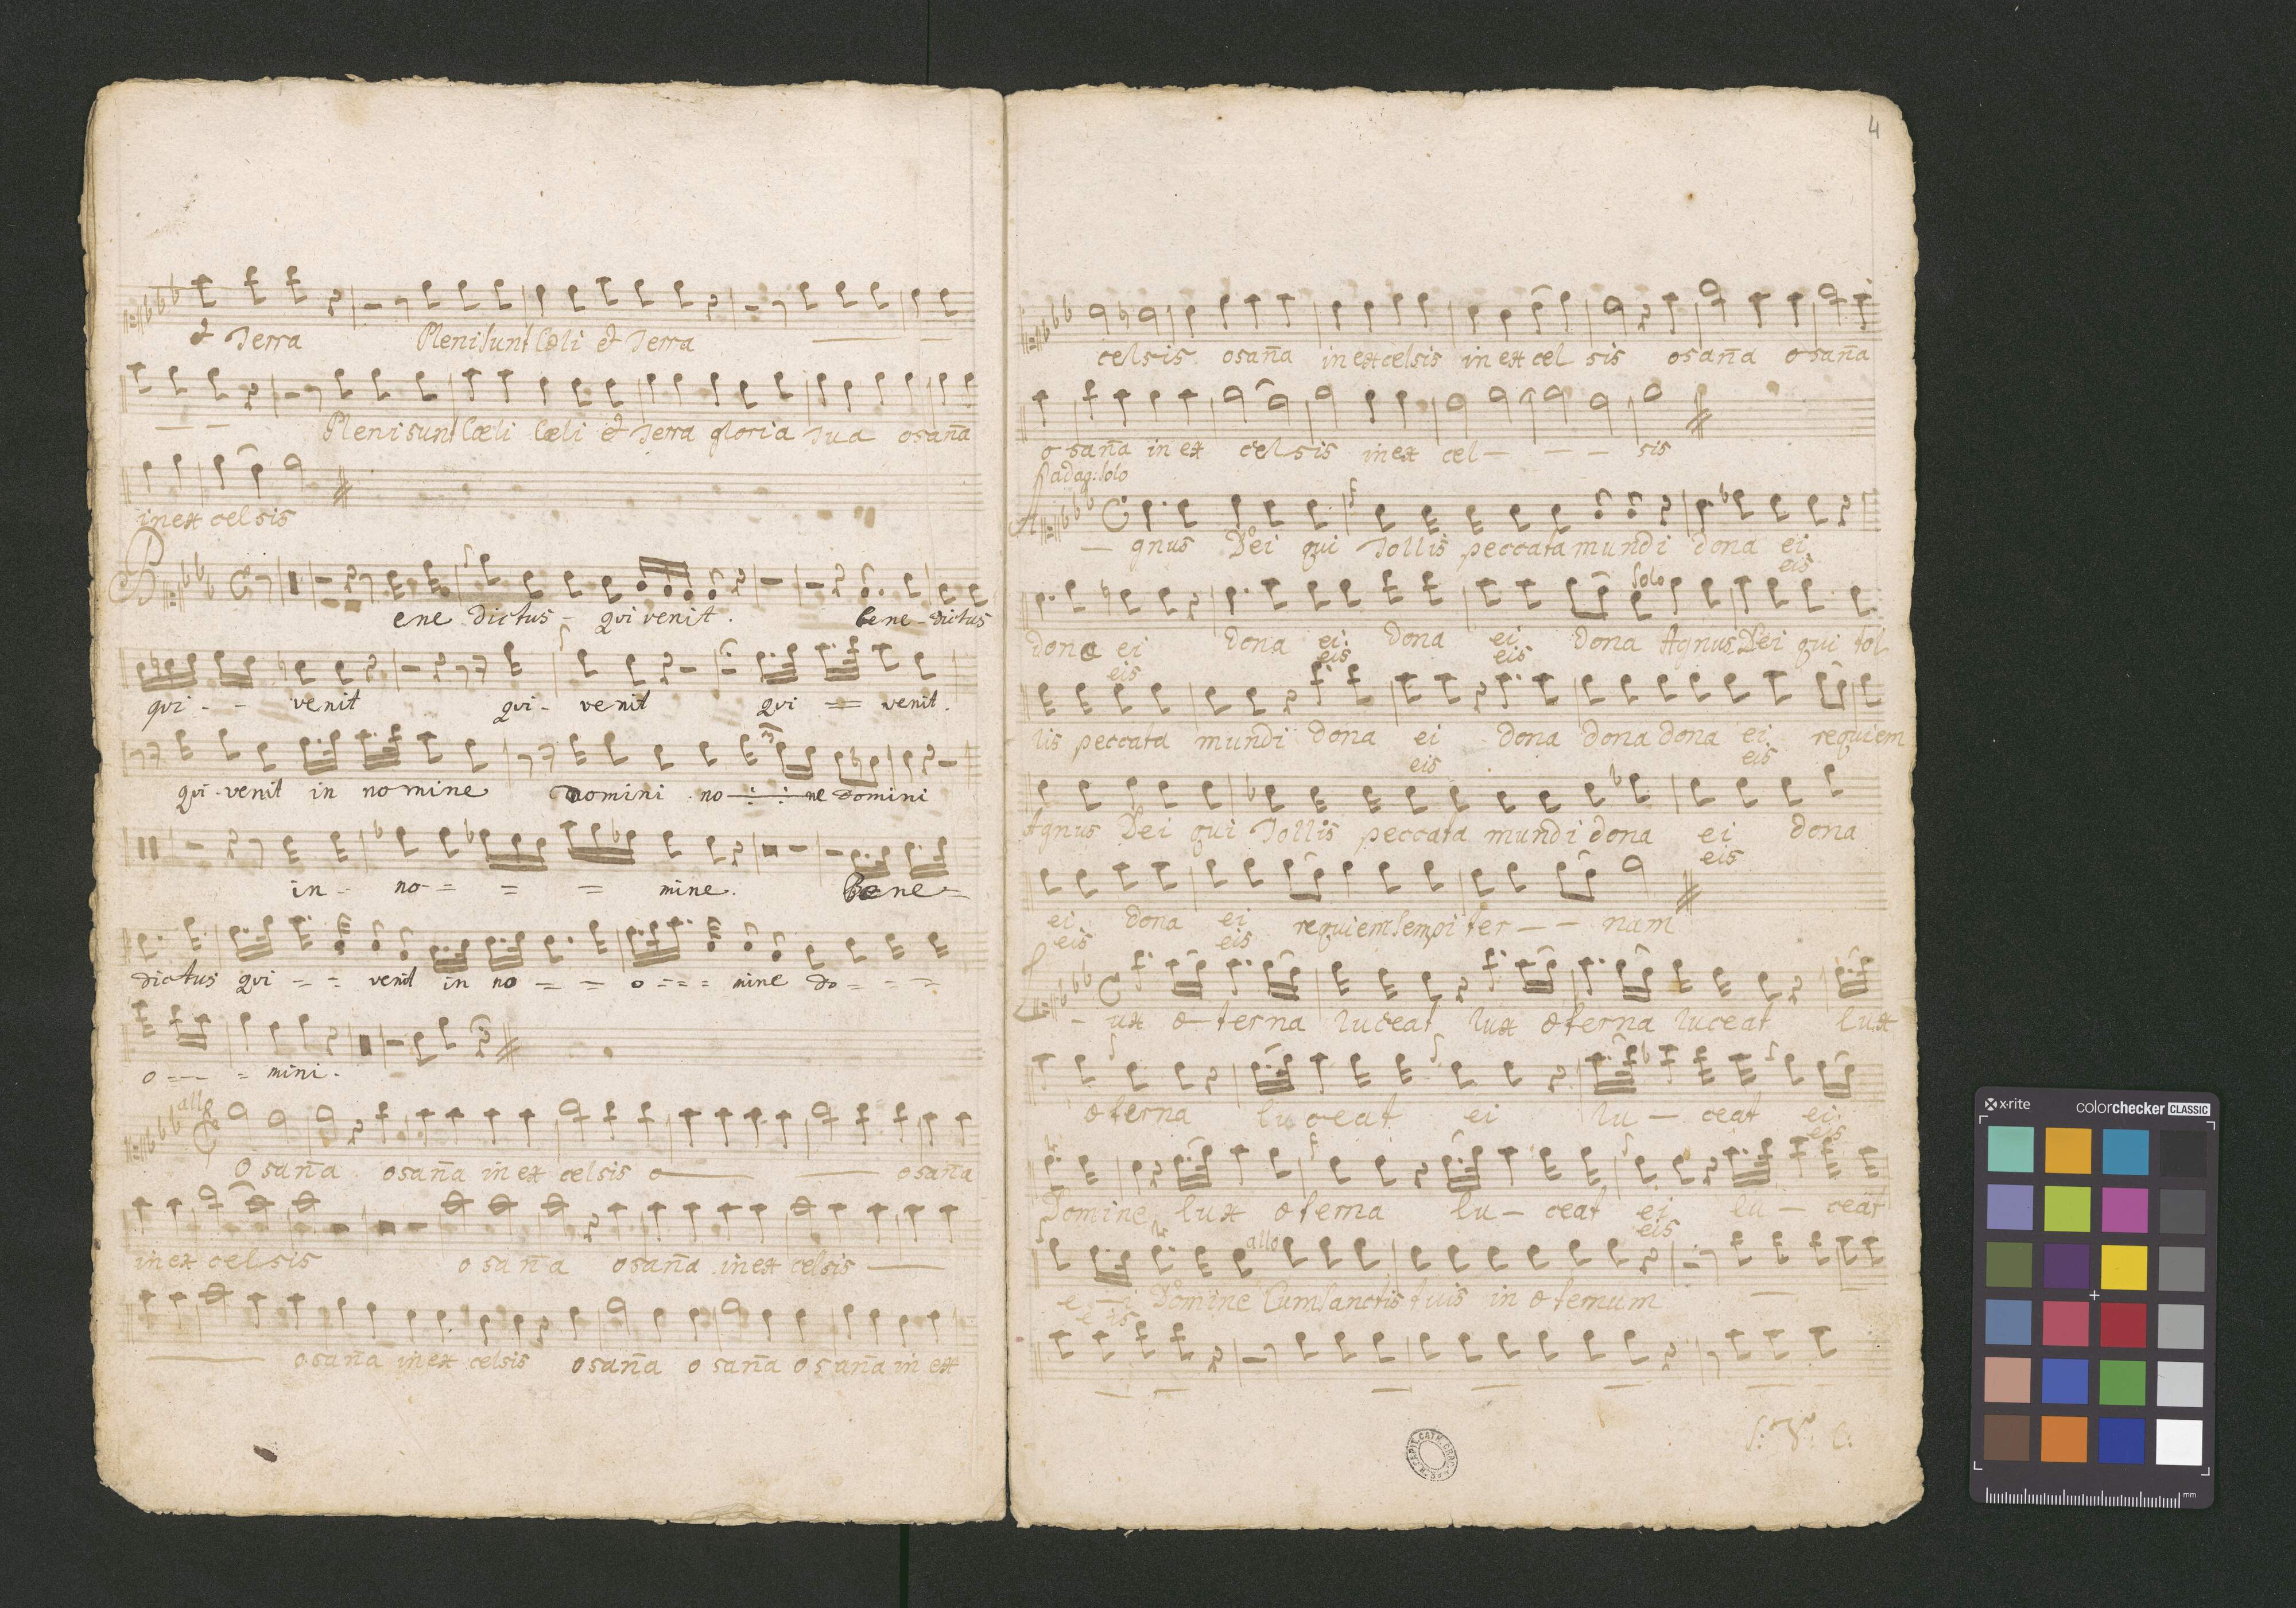 & Terra Pleni sunt Cœli & Terra
Pleni sunt Cœli Cœli & Terra gloria Tua osan̄a
in ex celsis
Bene dictus - qvi venit. bene - dictus
qvi - - venit qvi - venit qvi = venit.
qvi - venit in nomine Domini no - - - ne Domini
in - no - = = = mine. Bene =
dictus qvi = = venit in no = = o = = = mine Do = = =
o - - - = mini.
allo
Osan̄a osan̄a in ex celsis o osan̄a
in ex celsis osan̄a osan̄a in ex celsis
osan̄a in ex celsis osan̄a osan̄a osan̄a in ex
4
celsis osan̄a in ex celsis in ex cel sis osan̄a osan̄a
osan̄a in ex celsis in ex cel - - - sis
adag: solo
A - gnus Dei qui Tollis peccata mundi dona ei
eis
solo
dona ei dona ei dona ei dona Agnus Dei qui tol
eis eis eis
lis peccata mundi dona ei dona dona dona ei requiem
eis eis
Agnus Dei qui Tollis peccata mundi dona ei dona
eis
ei dona ei requiem sempiter - - nam
eis eis
L - ux œ - terna luceat lux œterna luceat lux
œterna luceat ei lu - ceat ei
eis
Domine lux œterna lu - ceat ei lu - ceat
eis
allo
e - i Domine Cum Sanctis tuis in œternum
e is
S: V: C:
x-rite colorchecker CLASSIC
mm